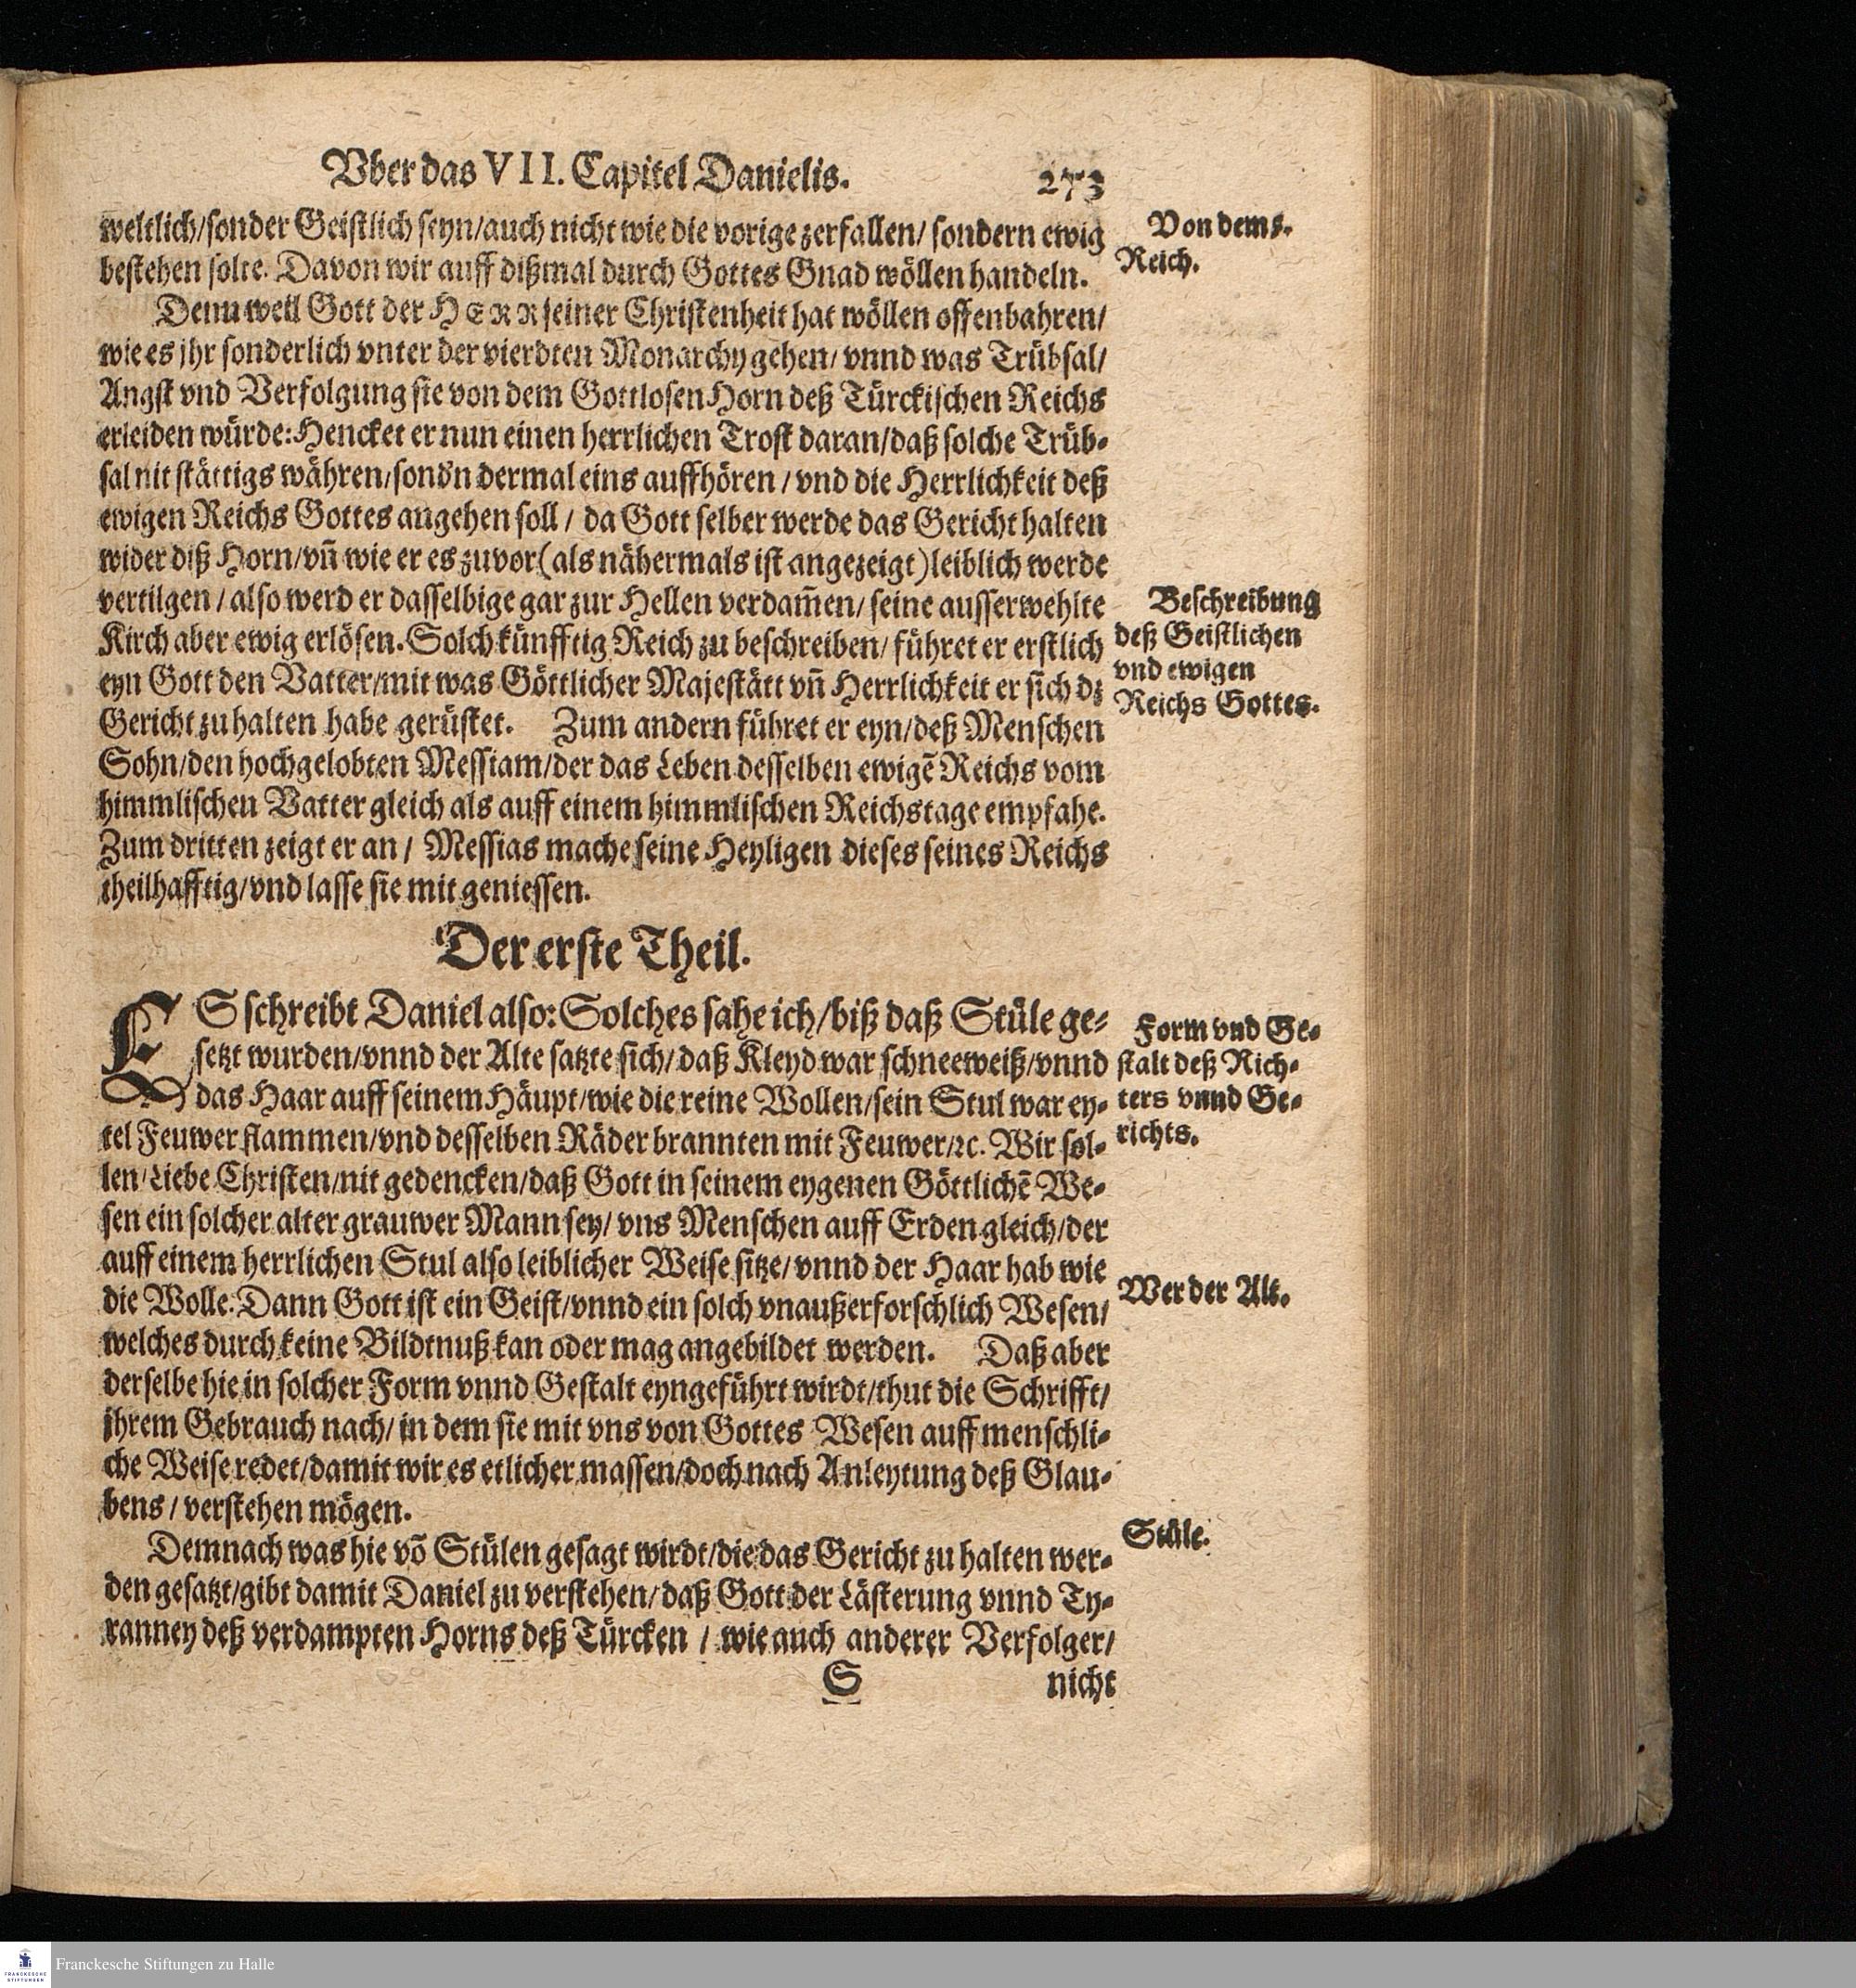 Vber das VII. Capitel Danielis. 273
weltlich/sonder Geistlich seyn/auch nicht wie die vorige zerfallen/ sondern ewig
bestehen solte. Davon wir auff dißmal durch Gottes Gnad wöllen handeln.
Von dem 5.
Reich.
Denn weil Gott der HERR seiner Christenheit hat wöllen offenbahren/
wie es jhr sonderlich vnter der vierdten Monarchy gehen/ vnnd was Trübsal/
Angst vnd Verfolgung sie von dem Gottlosen Horn deß Türckischen Reichs
erleiden würde: Hencket er nun einen herrlichen Trost daran/daß solche Trüb-
sal nit stättigs währen/sond'n dermal eins auffhören / vnd die Herrlichkeit deß
ewigen Reichs Gottes angehen soll / da Gott selber werde das Gericht halten
wider diß Horn/vn̄ wie er es zuvor (als nähermals ist angezeigt) leiblich werde
vertilgen / also werd er dasselbige gar zur Hellen verdam̄en/ seine ausserwehlte
Kirch aber ewig erlösen. Solch künfftig Reich zu beschreiben/ führet er erstlich
eyn Gott den Vatter/mit was Göttlicher Majestätt vn̄ Herrlichkeit er sich dz
Gericht zu halten habe gerüstet. Zum andern führet er eyn/deß Menschen
Sohn/den hochgelobten Messiam/der das Leben desselben ewigē Reichs vom
himmlischen Vatter gleich als auff einem himmlischen Reichstage empfahe.
Zum dritten zeigt er an / Messias mache seine Heyligen dieses seines Reichs
theilhafftig/vnd lasse sie mit geniessen.
Beschreibung
deß Geistlichen
vnd ewigen
Reichs Gottes.
Der erste Theil.
ES schreibt Daniel also: Solches sahe ich/biß daß Stüle ge-
setzt wurden/vnnd der Alte satzte sich/ daß Kleyd war schneeweiß/vnnd
das Haar auff seinem Häupt/wie die reine Wollen/sein Stul war ey-
tel Feuwer flammen/vnd desselben Räder brannten mit Feuwer/ꝛc. Wir sol-
len/Liebe Christen/nit gedencken/daß Gott in seinem eygenen Göttlichē We-
sen ein solcher alter grauwer Mann sey/ vns Menschen auff Erden gleich/der
auff einem herrlichen Stul also leiblicher Weise sitze/ vnnd der Haar hab wie
die Wolle: Dann Gott ist ein Geist/vnnd ein solch vnaußerforschlich Wesen/
welches durch keine Bildtnuß kan oder mag angebildet werden. Daß aber
derselbe hie in solcher Form vnnd Gestalt eyngeführt wirdt/thut die Schrifft/
jhrem Gebrauch nach/ in dem sie mit vns von Gottes Wesen auff menschli-
che Weise redet/damit wir es etlicher massen/doch nach Anleytung deß Glau-
bens / verstehen mögen.
Form vnd Ge-
stalt deß Rich-
ters vnnd Ge-
richts.
Wer der Alt.
Demnach was hie vō Stülen gesagt wirdt/die das Gericht zu halten wer-
den gesatzt/gibt damit Daniel zu verstehen/ daß Gott der Lästerung vnnd Ty-
ranney deß verdampten Horns deß Türcken / wie auch anderer Verfolger/
Stüle.
S nicht
FRANCKESCHE
STIFTUNGEN
Franckesche Stiftungen zu Halle